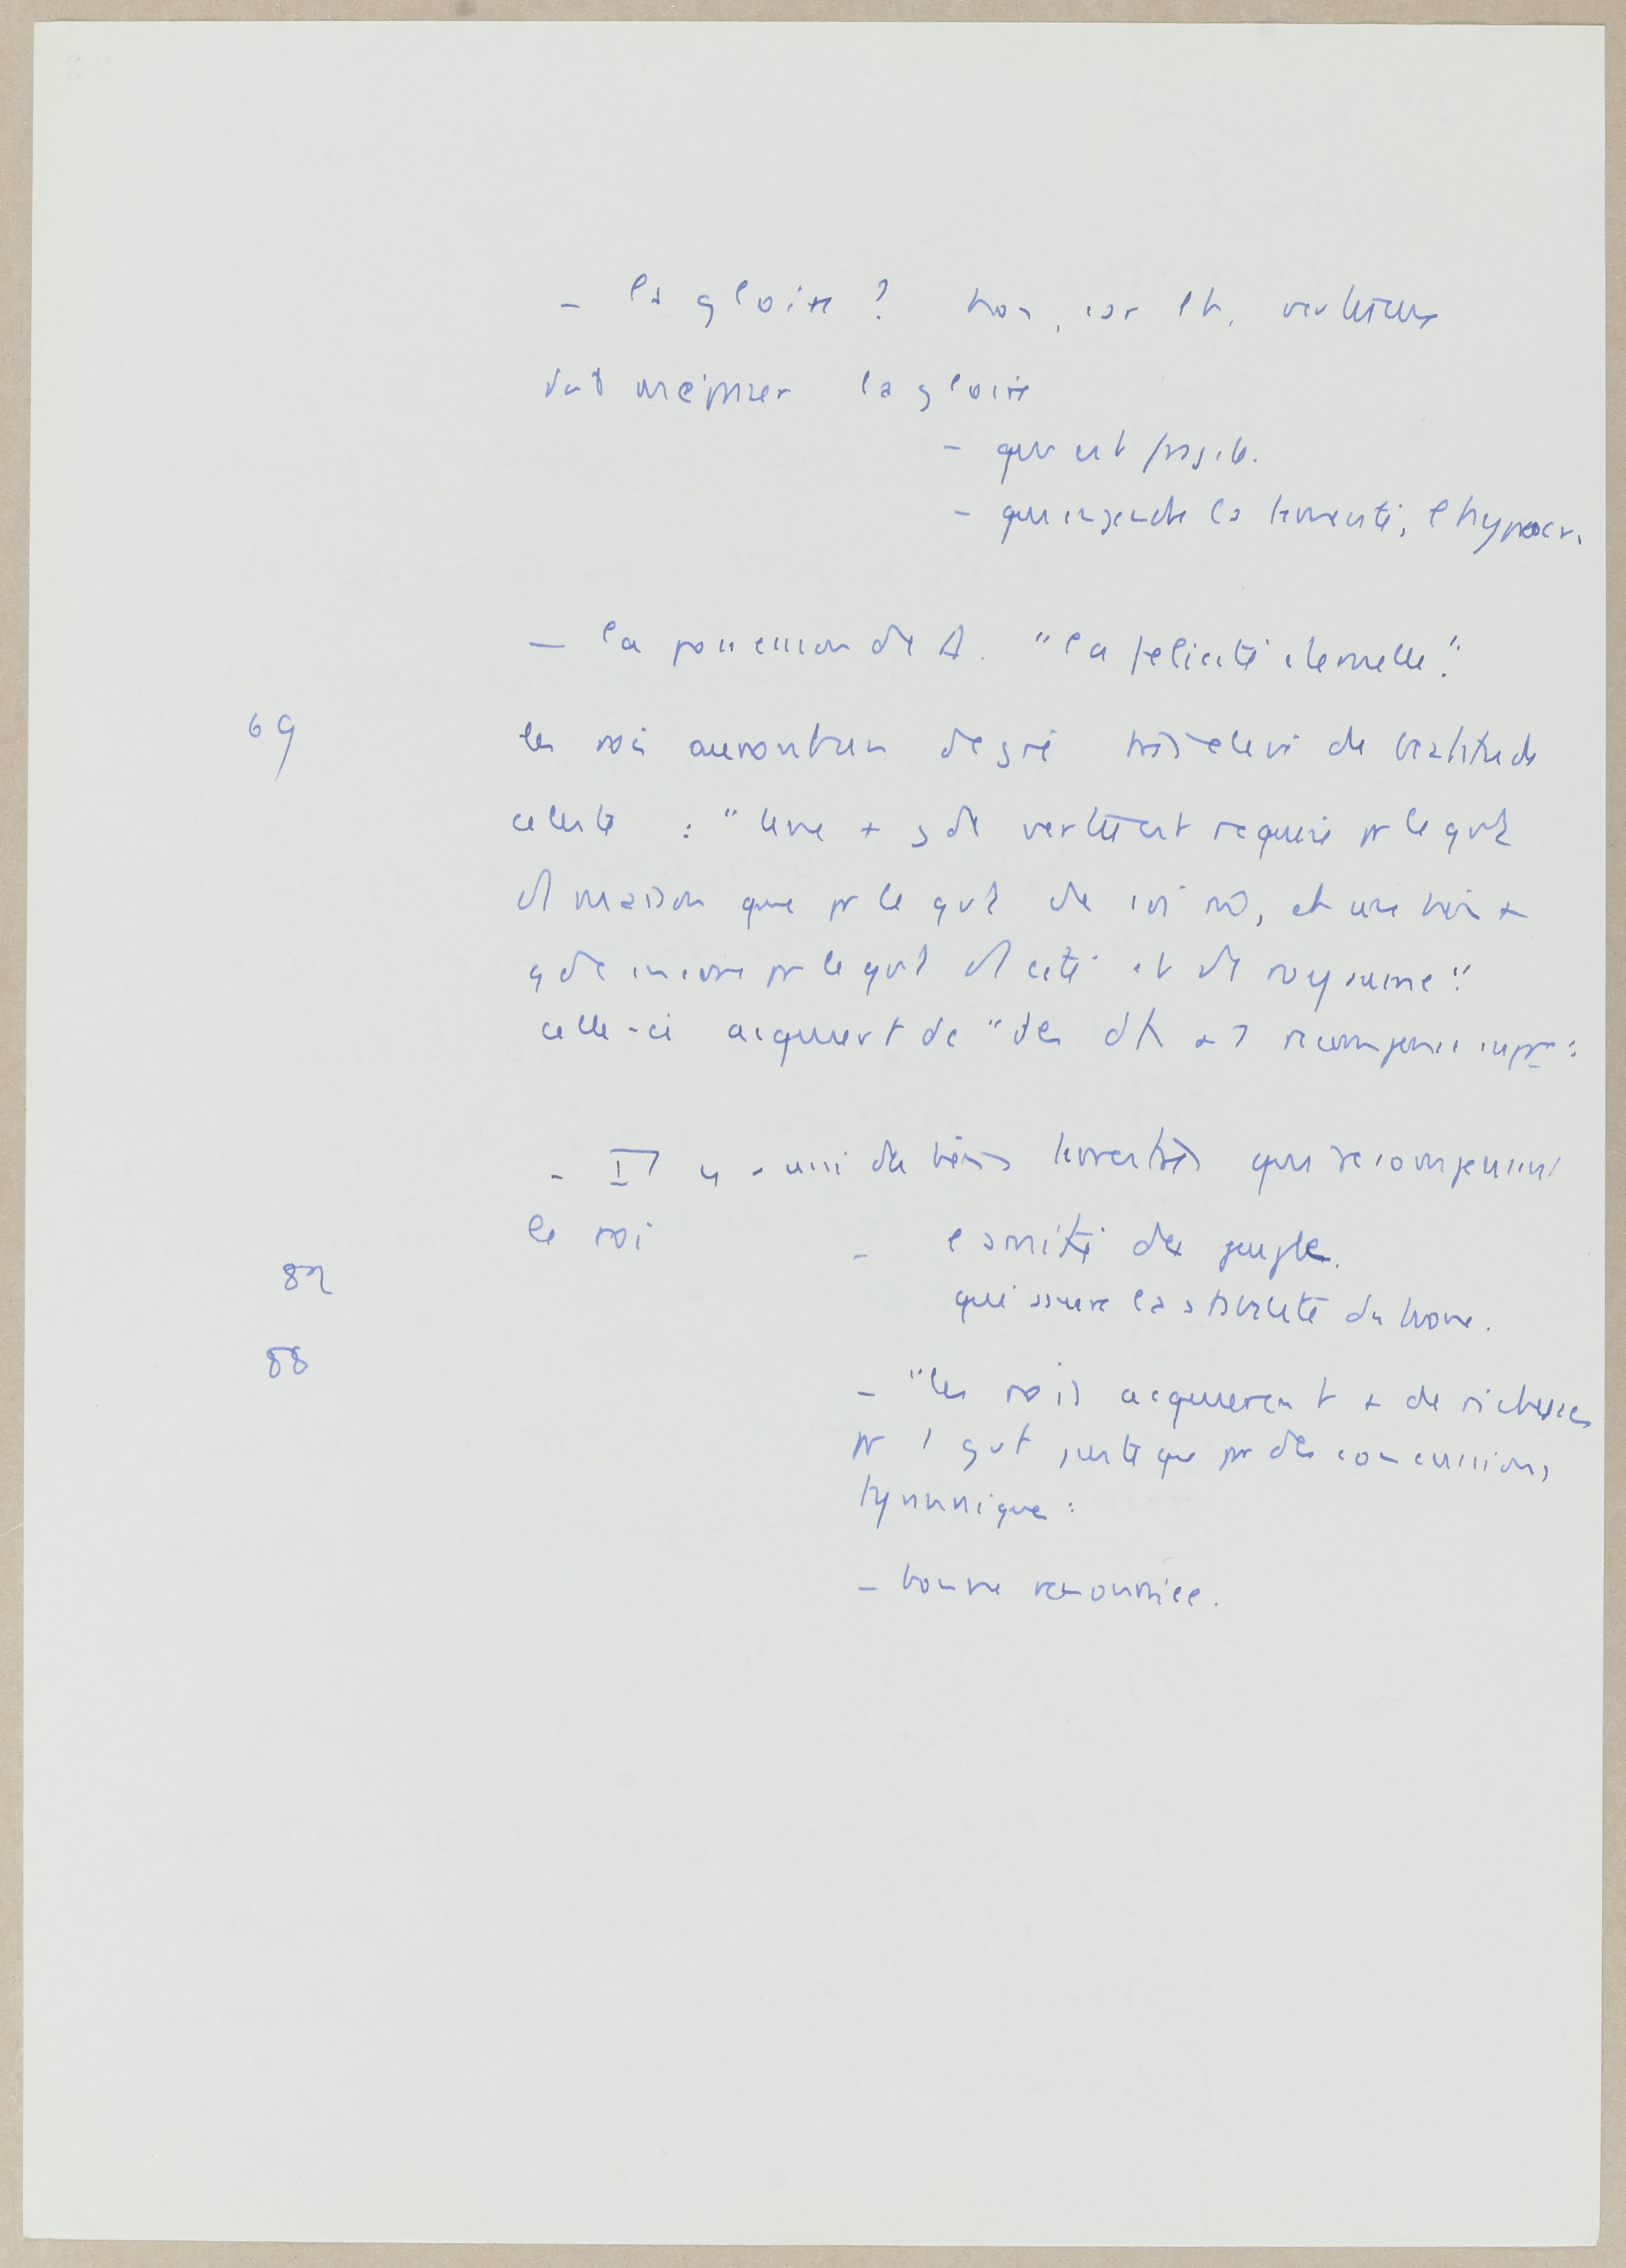 - la gloire ? non, car l'h. vertueux
doit mépriser la gloire
- qui est fragile.
- qui engendre la témérité, l'hypocr.
- la possession de D. "la félicité éternelle".
69 les rois auront un degré très élevé de béatitude
céleste : "une + gde vertu est requise pr le gvt
d'1 maison que pr le gvt de soi m̂, et une bien +
gde encore pr le gvt d'1 cité et d'1 royaume".
celle-ci acquiert dc "des dts à 1 récompense supre"
- Il y a aussi des biens temporels qui récompensent
le roi - l'amitié des peuples.
82 qui assure la stabilité du trône.
88 - "les rois acquièrent + de richesses
pr 1 gvt juste que pr des concussions
tyranniques"
- bonne renommée.